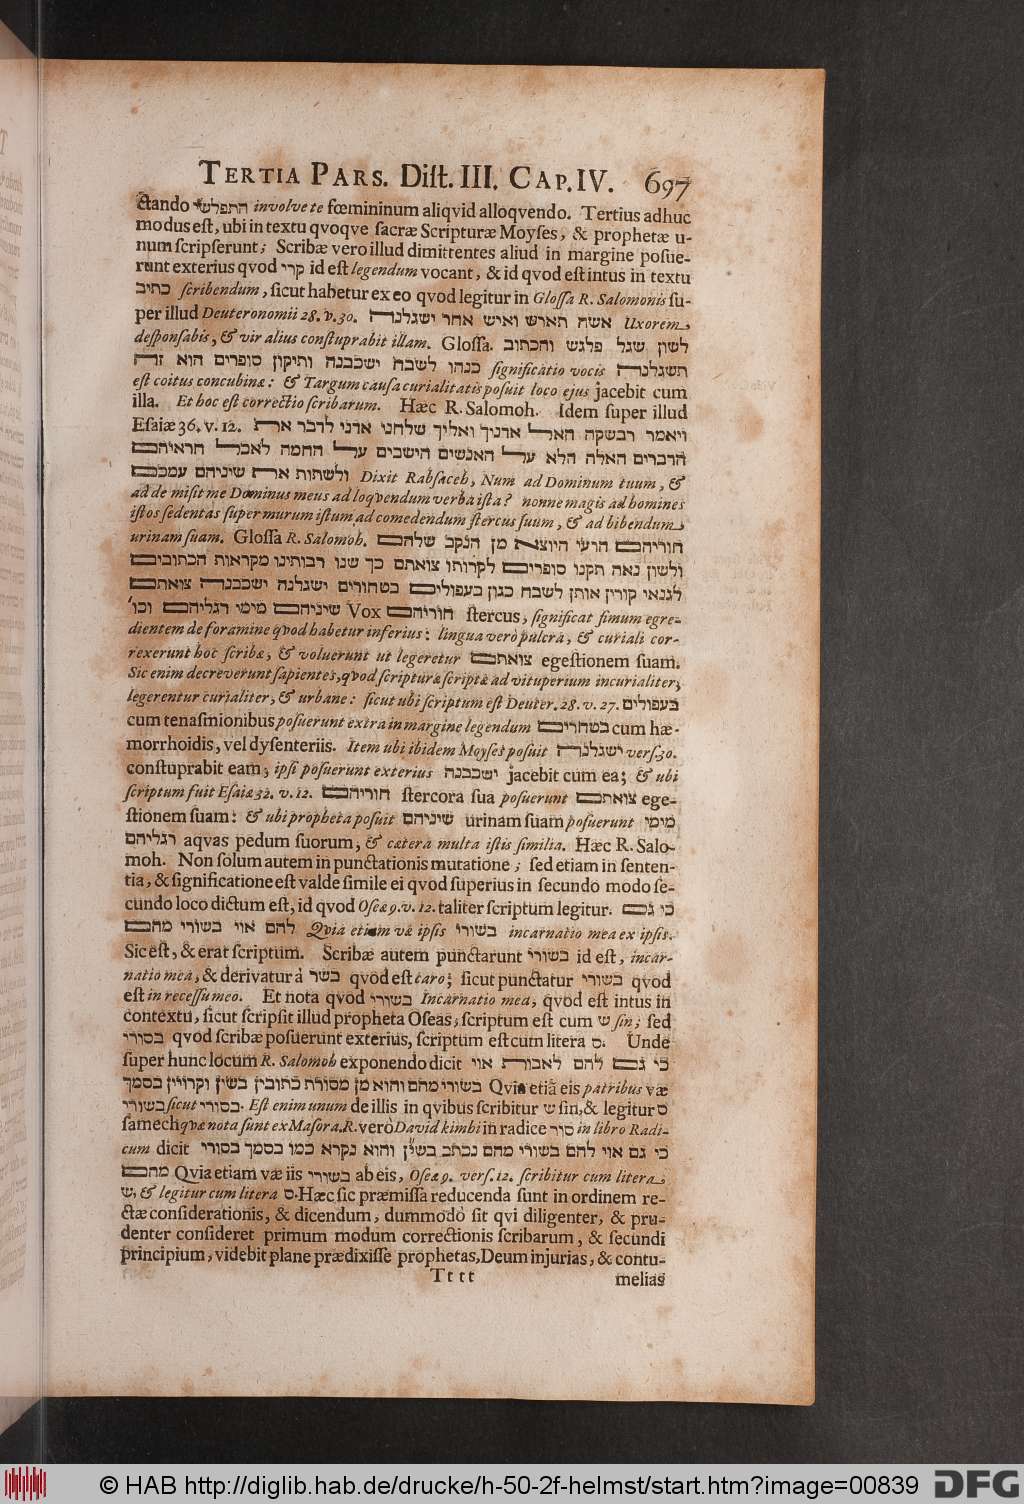 TERTIA PARS. Diſt. III. CAP. IV. 697
ctando התפלשי involve te fœmininum aliqvid alloqvendo. Tertius adhuc
modus eſt, ubi in textu qvoqve ſacræ Scripturæ Moyſes, & prophetæ u-
num ſcripſerunt; Scribæ vero illud dimittentes aliud in margine poſue-
runt exterius qvod קרי id eſt legendum vocant, & id qvod eſt intus in textu
כתיב ſcribendum, ſicut habetur ex eo qvod legitur in Gloſſa R. Salomonis ſu-
per illud Deuteronomii 28. v. 30. אשה תארש ואיש אחר ישגלנה Uxorem
deſponſabis, & vir alius conſtuprabit illam. Gloſſa. לשון שגל פלגש והכתוב
תשגלנה כנהו לשבח ישכבנה ותיקון סופרים הוא זה ſignificatio vocis
eſt coitus concubinæ: & Targum cauſa curialitatis poſuit loco ejus jacebit cum
illa. Et hoc eſt correctio ſcribarum. Hæc R. Salomoh. Idem ſuper illud
Eſaiæ 36. v. 12. ויאמר רבשקה האל אדניך ואליך שלחני אדני לדבר את
הדברים האלה הלא על האנשים הישבים על החמה לאכל חראיהם
ולשתות את שיניהם עמכם Dixit Rabſaceh, Num ad Dominum tuum, &
ad de miſit me Dominus meus ad loqvendum verba iſta? nonne magis ad homines
iſtos ſedentas ſuper murum iſtum ad comedendum ſtercus ſuum, & ad bibendum
urinam ſuam. Gloſſa R. Salomoh. חוריהם הרעי היוצא מן הנקב שלהם
ולשון נאה תקנו סופרים לקרותו צואתם כך שנו רבותינו מקראות הכתובים
לגנאי קורין אותן לשבח כגון בעפולים בטחורים ישגלנה ישכבנה צואתם
חוריהם שיניהם מימי רגליהם וכו' Vox ſtercus, ſignificat fimum egre-
dientem de foramine qvod habetur inferius: lingua verò pulcra, & curiali cor-
rexerunt hoc ſcribæ, & voluerunt ut legeretur צואתם egeſtionem ſuam.
Sic enim decreverunt ſapientes, qvod ſcripturæ ſcriptæ ad vituperium incurialiter,
legerentur curialiter, & urbane: ſicut ubi ſcriptum eſt Deuter. 28. v. 27. בעפולים
cum tenaſmionibus poſuerunt extra in margine legendum בטחרים cum hæ-
morrhoidis, vel dyſenteriis. Item ubi ibidem Moyſes poſuit ישגלנה verſ. 30.
conſtuprabit eam, ipſi poſuerunt exterius ישכבנה jacebit cum ea; & ubi
ſcriptum fuit Eſaiæ 32. v. 12. חוריהם ſtercora ſua poſuerunt צואתם ege-
ſtionem ſuam: & ubi propheta poſuit שיניהם urinam ſuam poſuerunt מימי
רגליהם aqvas pedum ſuorum, & cætera multa iſtis ſimilia. Hæc R. Salo-
moh. Non ſolum autem in punctationis mutatione; ſed etiam in ſenten-
tia, & ſignificatione eſt valde ſimile ei qvod ſuperius in ſecundo modo ſe-
cundo loco dictum eſt, id qvod Oſeæ 9. v. 12. taliter ſcriptum legitur. כי גם
להם אוי בשורי מהם Qvia etiam væ ipſis בשורי incarnatio mea ex ipſis.
Sic eſt, & erat ſcriptum. Scribæ autem punctarunt בשורי id eſt, incar-
natio mea, & derivatur à בשר qvod eſt caro; ſicut punctatur בשורי qvod
eſt in receſſu meo. Et nota qvod בשורי Incarnatio mea, qvod eſt intus in
contextu, ſicut ſcripſit illud propheta Oſeas, ſcriptum eſt cum ש ſin; ſed
בסורי qvod ſcribæ poſuerunt exterius, ſcriptum eſt cum litera ס. Unde
ſuper hunc locum R. Salomoh exponendo dicit כי גם להם לאבות אוי
בשורי מהם והוא מן מסורת כתובין בשין וקרויין בסמך Qvia etiã eis patribus væ
בשורי ſicut בסורי. Eſt enim unum de illis in qvibus ſcribitur ש ſin, & legitur ס
ſamech qvæ nota ſunt ex Maſora. R. verò David kimbi in radice סור in libro Radi-
cum dicit כי גם אוי להם בשורי מהם נכתב בשין והוא נקרא כמו בסמך בסורי
מהם Qvia etiam væ iis בשורי ab eis, Oſeæ 9. verſ. 12. ſcribitur cum litera
ש, & legitur cum litera ס. Hæc ſic præmiſſa reducenda ſunt in ordinem re-
ctæ conſiderationis, & dicendum, dummodò ſit qvi diligenter, & pru-
denter conſideret primum modum correctionis ſcribarum, & ſecundi
principium, videbit plane prædixiſſe prophetas, Deum injurias, & contu-
Tttt melias
© HAB http://diglib.hab.de/drucke/h-50-2f-helmst/start.htm?image=00839 DFG